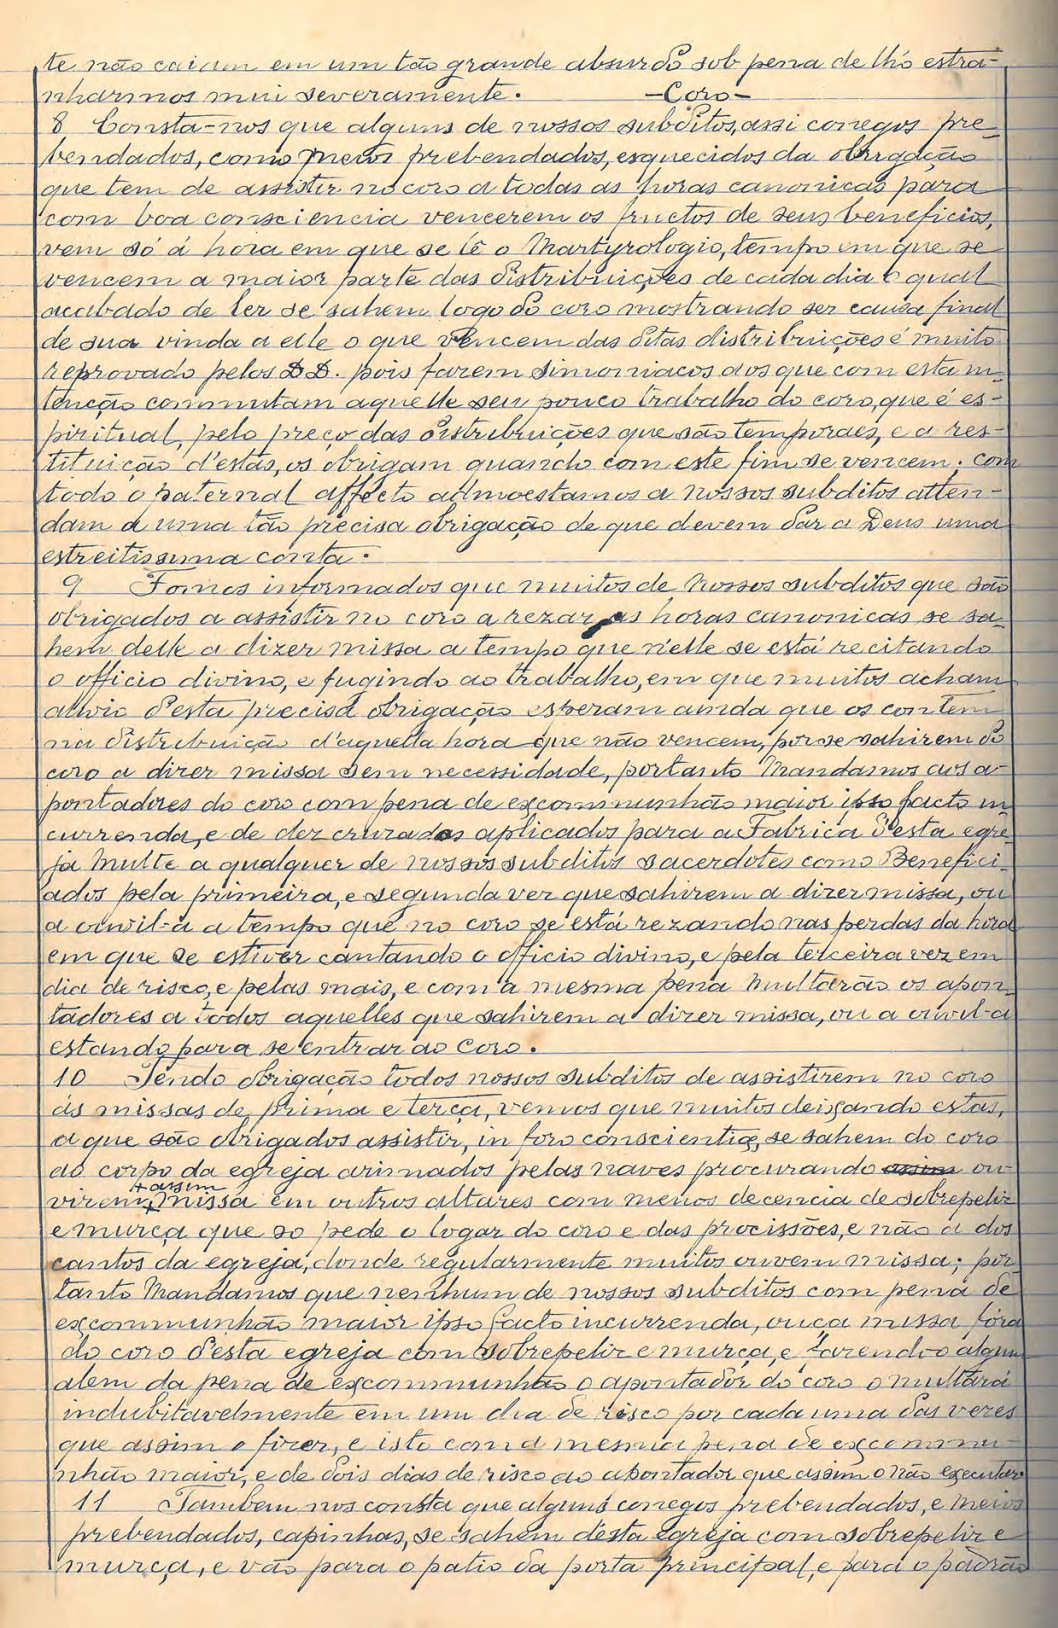 te não caiam em um tão grande absurdo sob pena de lhó estra-
nharmos mui severamente. -Coro-
8 Consta-nos que alguns de nossos subditos, assi conegos pre-
bendados, como meios prebendados, esquecidos da obrigação
que tem de assistir no coro a todas as horas canonicas para
com boa consciencia vencerem os fructos de seus beneficios,
vem só á hora em que se lê o Martyrologio, tempo em que se
vencem a maior parte das distribuições de cada dia o qual
acabado de ler se sahem logo do coro mostrando ser causa final
de sua vinda a elle o que vencem das ditas distribuições é muito
reprovado pelos DD. pois fazem simoniacos aos que com esta in-
tenção commutam aquelle seu pouco trabalho do coro, que é es-
piritual, pelo preço das distribuições que são temporaes, e a res-
tituição d'estas, os obrigam quando com este fim se vencem; com
todo o paternal affecto admoestamos a nossos subditos atten-
dam a uma tão precisa obrigação de que devem dar a Deus uma
estreitissima conta.
9 Fomos informados que muitos de nossos subditos que são
obrigados a assistir no coro a rezar as horas canonicas se sa-
hem delle a dizer missa a tempo que n'elle se está recitando
o officio divino, e fugindo ao trabalho, em que muitos acham
alivio d'esta precisa obrigação esperam ainda que os contem
na distribuição d'aquella hora que não vencem, por se sahirem do
coro a dizer missa sem necessidade, portanto Mandamos aos a-
pontadores do coro com pena de excommunhão maior ipso facto in
currenda, e de dez cruzados aplicados para a Fabrica d'esta egre
ja Multe a qualquer de nossos subditos sacerdotes como Benefici-
ados pela primeira, e segunda vez que sahirem a dizer missa, ou
a ouvil-a a tempo que no coro se está rezando nas perdas da hora
em que se estiver cantando o officio divino, e pela terceira vez em
dia de risco, e pelas mais, e com a mesma pena Multarão os apon-
tadores a todos aquelles que sahirem a dizer missa, ou a ouvil-a
estando para se entrar ao Coro.
10 Tendo obrigação todos nossos subditos de assistirem no coro
ás missas de prima e terça, vemos que muitos deixando estas,
a que são obrigados assistir, in foro conscientiæ, se sahem do coro
ao corpo da egreja arimados pelas naves procurando assim ou
+ assim
virem + missa em outros altares com menos decencia de sobrepeliz
e murça que só pede o logar do coro e das procissões, e não a dos
cantos da egreja, donde regularmente muitos ouvem missa; por-
tanto Mandamos que nenhum de nossos subditos com pena de
excommunhão maior ipso facto incurrenda, ouça missa fóra
do coro d'esta egreja com sobrepeliz e murça, e fazendo-o algum
alem da pena de excommunhão o apontador do coro o multará
indubitavelmente em um dia de risco por cada uma das vezes
que assim o fizer, e isto com a mesma pena de excommu-
nhão maior, e de dois dias de risco ao apontador que assim o não executar.
11 Tambem nos consta que alguns conegos prebendados, e meios
prebendados, capinhas, se sahem d'esta egreja com sobrepeliz e
murça, e vão para o patio da porta principal, e para o padrão